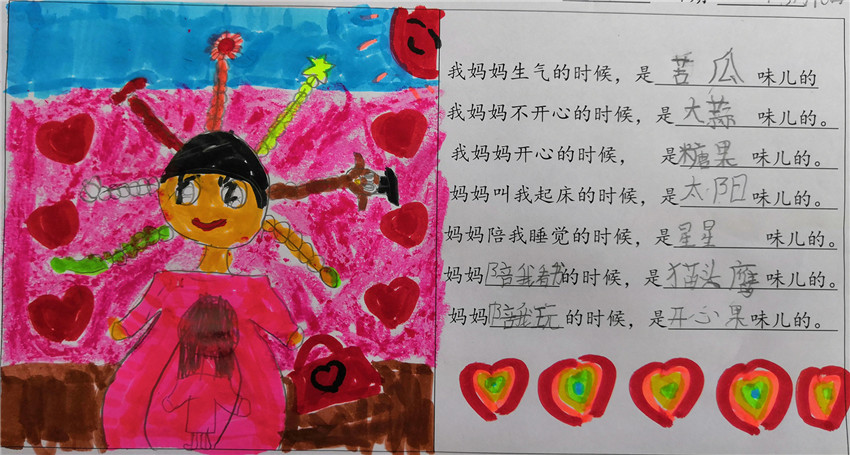 我妈妈生气的时候，是苦瓜味儿的
我妈妈不开心的时候，是大蒜味儿的。
我妈妈开心的时候，是糖果味儿的。
妈妈叫我起床的时候，是太阳味儿的。
妈妈陪我睡觉的时候，是星星味儿的。
妈妈陪我的时候，是猫头鹰味儿的。
妈妈陪我玩的时候，是开心果味儿的。